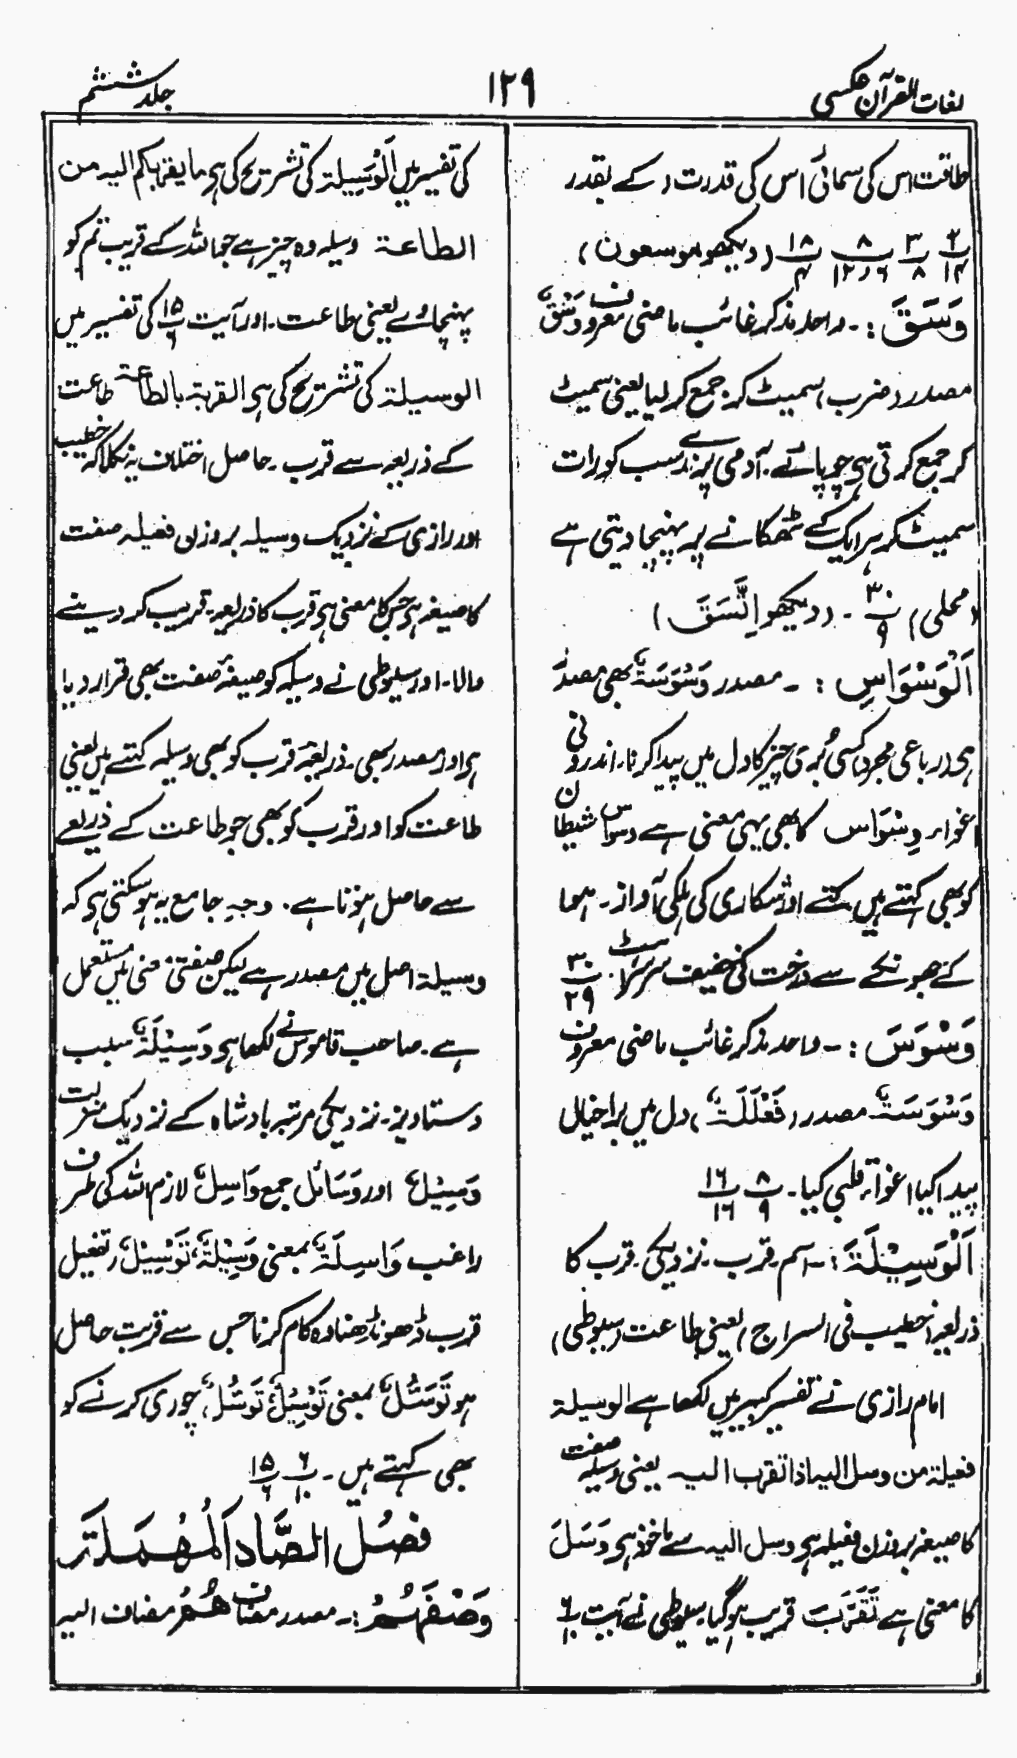 لغات القرآن عکسی
۱۲۹
جلد ششم
طاقت اس کی سمائی اس کی قدرت کے بقدر
۲/۱۴ ۳/۸ ۸/۱۲،۶ ۱۸/۴ (دیکھو موسعون)
وَسَقَ :۔ واحد مذکر غائب ماضی معروف وَسْقٌ
مصدر (ضرب) سمیٹ کر جمع کر لیا یعنی سمیٹ
کر جمع کرتی ہی چوپائے۔ آدمی پرندے سب کو رات
سمیٹ کر ہر ایک کے ٹھکانے پر پہنچا دیتی ہے
(محلی) ۳۰/۹ ۔ (دیکھو اِتَّسَقَ)
اَلْوَسْوَاسِ :۔ مصدر وَسْوَسَۃٌ بھی مصدر
ہی (رباعی مجرد) کسی بُری چیز کا دل میں پیدا کرنا۔ اندرونی
اغواء۔ وِسْوَاس کا بھی یہی معنی ہے وسواس شیطان
کو بھی کہتے ہیں کتے اور شکاری کی ہلکی آواز۔ ہوا
کے جھونکے سے درخت کی خفیف سرسراہٹ ۳۰/۲۹
وَسْوَسَ :۔ واحد مذکر غائب ماضی معروف
وَسْوَسَۃٌ مصدر (فَعْلَلَۃٌ) دل میں برا خیال
پیدا کیا اغواءِ قلبی کیا۔ ۸/۹ ۱۶/۱۶
اَلْوَسِیْلَۃَ :۔ اسم۔ قرب۔ نزدیکی۔ قرب کا
ذریعہ (خطیب فی السراج) یعنی طاعت (سیوطی)
امام رازی نے تفسیر کبیر میں لکھا ہے الوسیلۃ
فعیلۃ من وسل الیہ اذا تقرب الیہ یعنی وسیلہ صفت
کا صیغہ بروزن فعیلہ ہی وسل الیہ سے ماخوذ ہی وَسَلَ
کا معنی ہے تَقَرَّبَ قریب ہو گیا۔ سیوطی نے آیت ۶/۱۰
کی تفسیر میں اَلْوَسِیلۃ کی تشریح کی ہی ما یقربکم الیہ من
الطاعۃ وسیلہ وہ چیز ہے جو اللہ کے قریب تم کو
پہنچاوے یعنی طاعت۔ اور آیت ۱۵/۶ کی تفسیر میں
الوسیلۃ کی تشریح کی ہی القربۃ بالطاعۃ طاعت
کے ذریعہ سے قرب۔ حاصل اختلاف یہ نکلا کہ خطیب
اور رازی کے نزدیک وسیلہ بروزن فعیلہ صفت
کا صیغہ ہی جس کا معنی ہی قرب کا ذریعہ۔ قریب کر دینے
والا۔ اور سیوطی نے وسیلہ کو صیغہ صفت بھی قرار دیا
ہی اور مصدر بھی۔ ذریعۂ قرب کو بھی وسیلہ کہتے ہیں یعنی
طاعت کو اور قرب کو بھی جو طاعت کے ذریعے
سے حاصل ہوتا ہے۔ وجہِ جامع یہ ہو سکتی ہی کہ
وسیلۃ اصل میں مصدر ہے لیکن صفتی معنی میں مستعمل
ہے۔ صاحب قاموس نے لکھا ہی وَسِیْلَۃٌ سبب
دستاویز۔ نزدیکی مرتبہ بادشاہ کے نزدیک منزلت
وَسِیْلٌ اور وَسَائِل جمع وَاسِلٌ لازم اللہ کی طرف
راغب وَاسِلَۃٌ بمعنی وَسِیْلَۃٌ، تَوْسِیْلٌ (تفعیل)
قرب ڈھونڈھنا وہ کام کرنا جس سے قربت حاصل
ہو تَوَسُّلٌ بمعنی تَوْسِیْلٌ، تَوَسُّلٌ، چوری کرنے کو
بھی کہتے ہیں۔ ۶/۱۰ ۱۵/۶
فَصْلُ الصَّادِ الْمُهْمَلَۃِ
وَصْفَهُمْ :۔ مصدر مضاف هُمْ مضاف الیہ